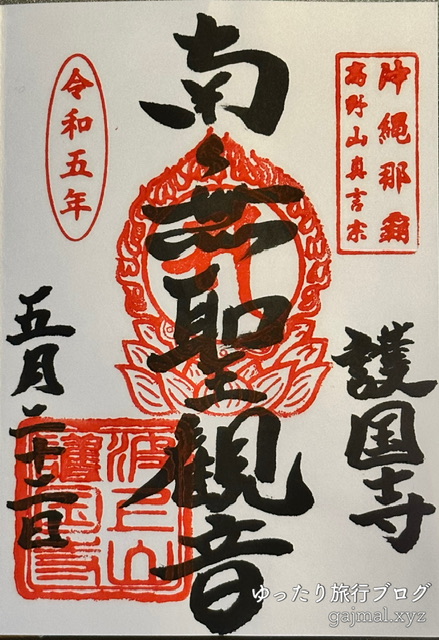 沖縄那覇
高野山真言宗
護国寺
南無聖観音
令和五年
五月二十二日
波上山
護国寺
ゆったり旅行ブログ
gajmal.xyz